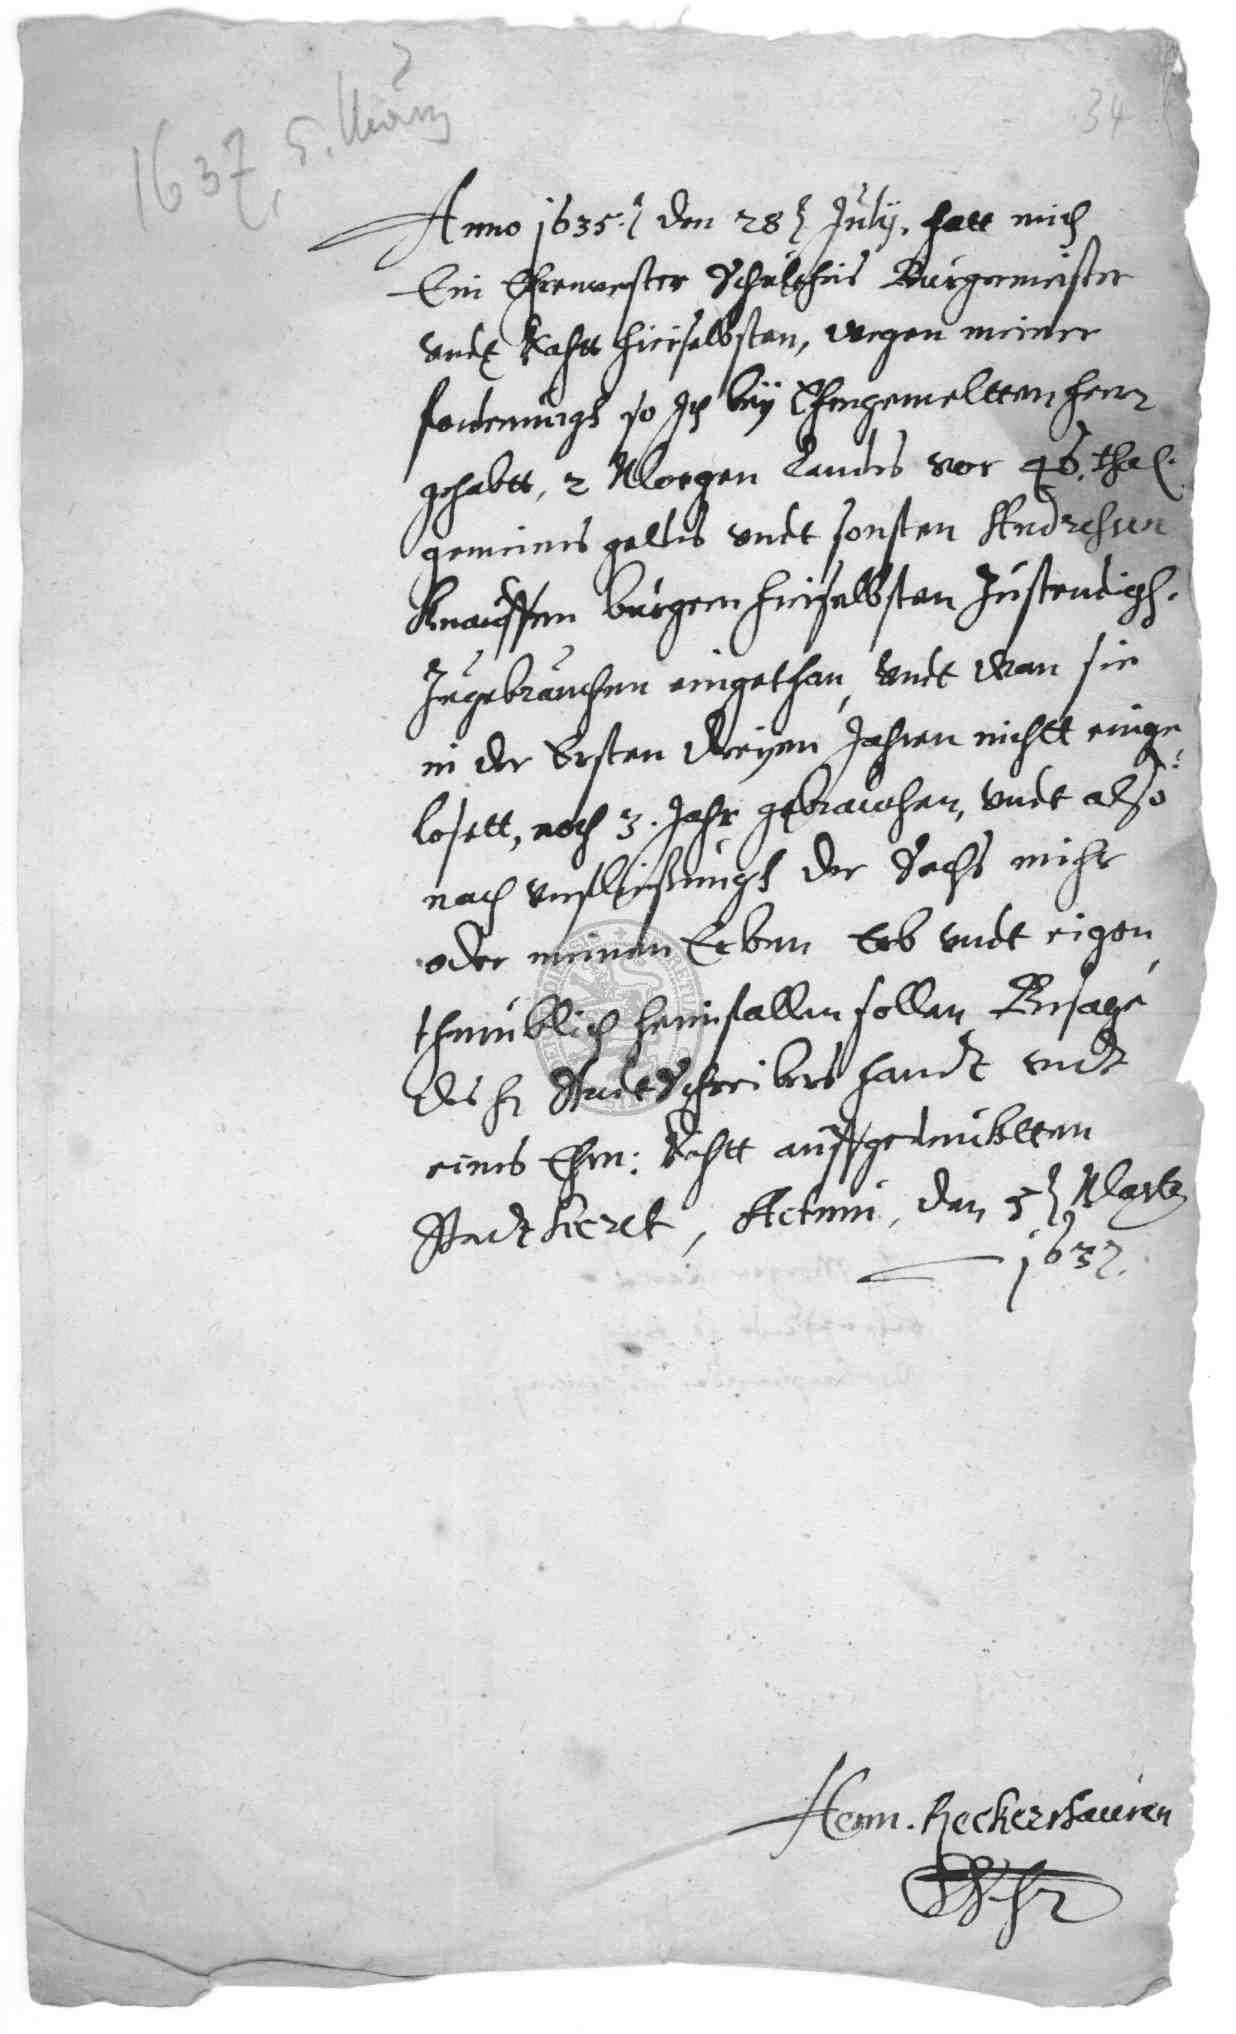 34
1637, 5. März
Anno 1635. den 28 July. hatt mich
Ein Ehrenvester Schultheis Bürgermeister
undt Rahtt hierselbsten, wegen meiner
forderungh so Ich bey Ehrngemeltten herrn
gehabtt, 2 Morgen Landes vor 46. thal.
gemeines geldes undt sonsten Andresen
Knauffen bürgern hierselbsten zustendigh.
zugebrauchen eingethan, undt wan sie
in der Ersten dreyen Jahren nichtt einge
losett, noch 3. Jahr gebrauchen, undt also
nach verfliessungh der Sechs mihr
oder meinen Erben Erb undt eigen
thumblich heimfallen sollen Besage
des h Stadtschreibers handt undt
eines Ehrn: Rahtt auffgedrucktten
Stadt Secret, Actum, den 5 Martz
1637.
Henn. Reckershausen